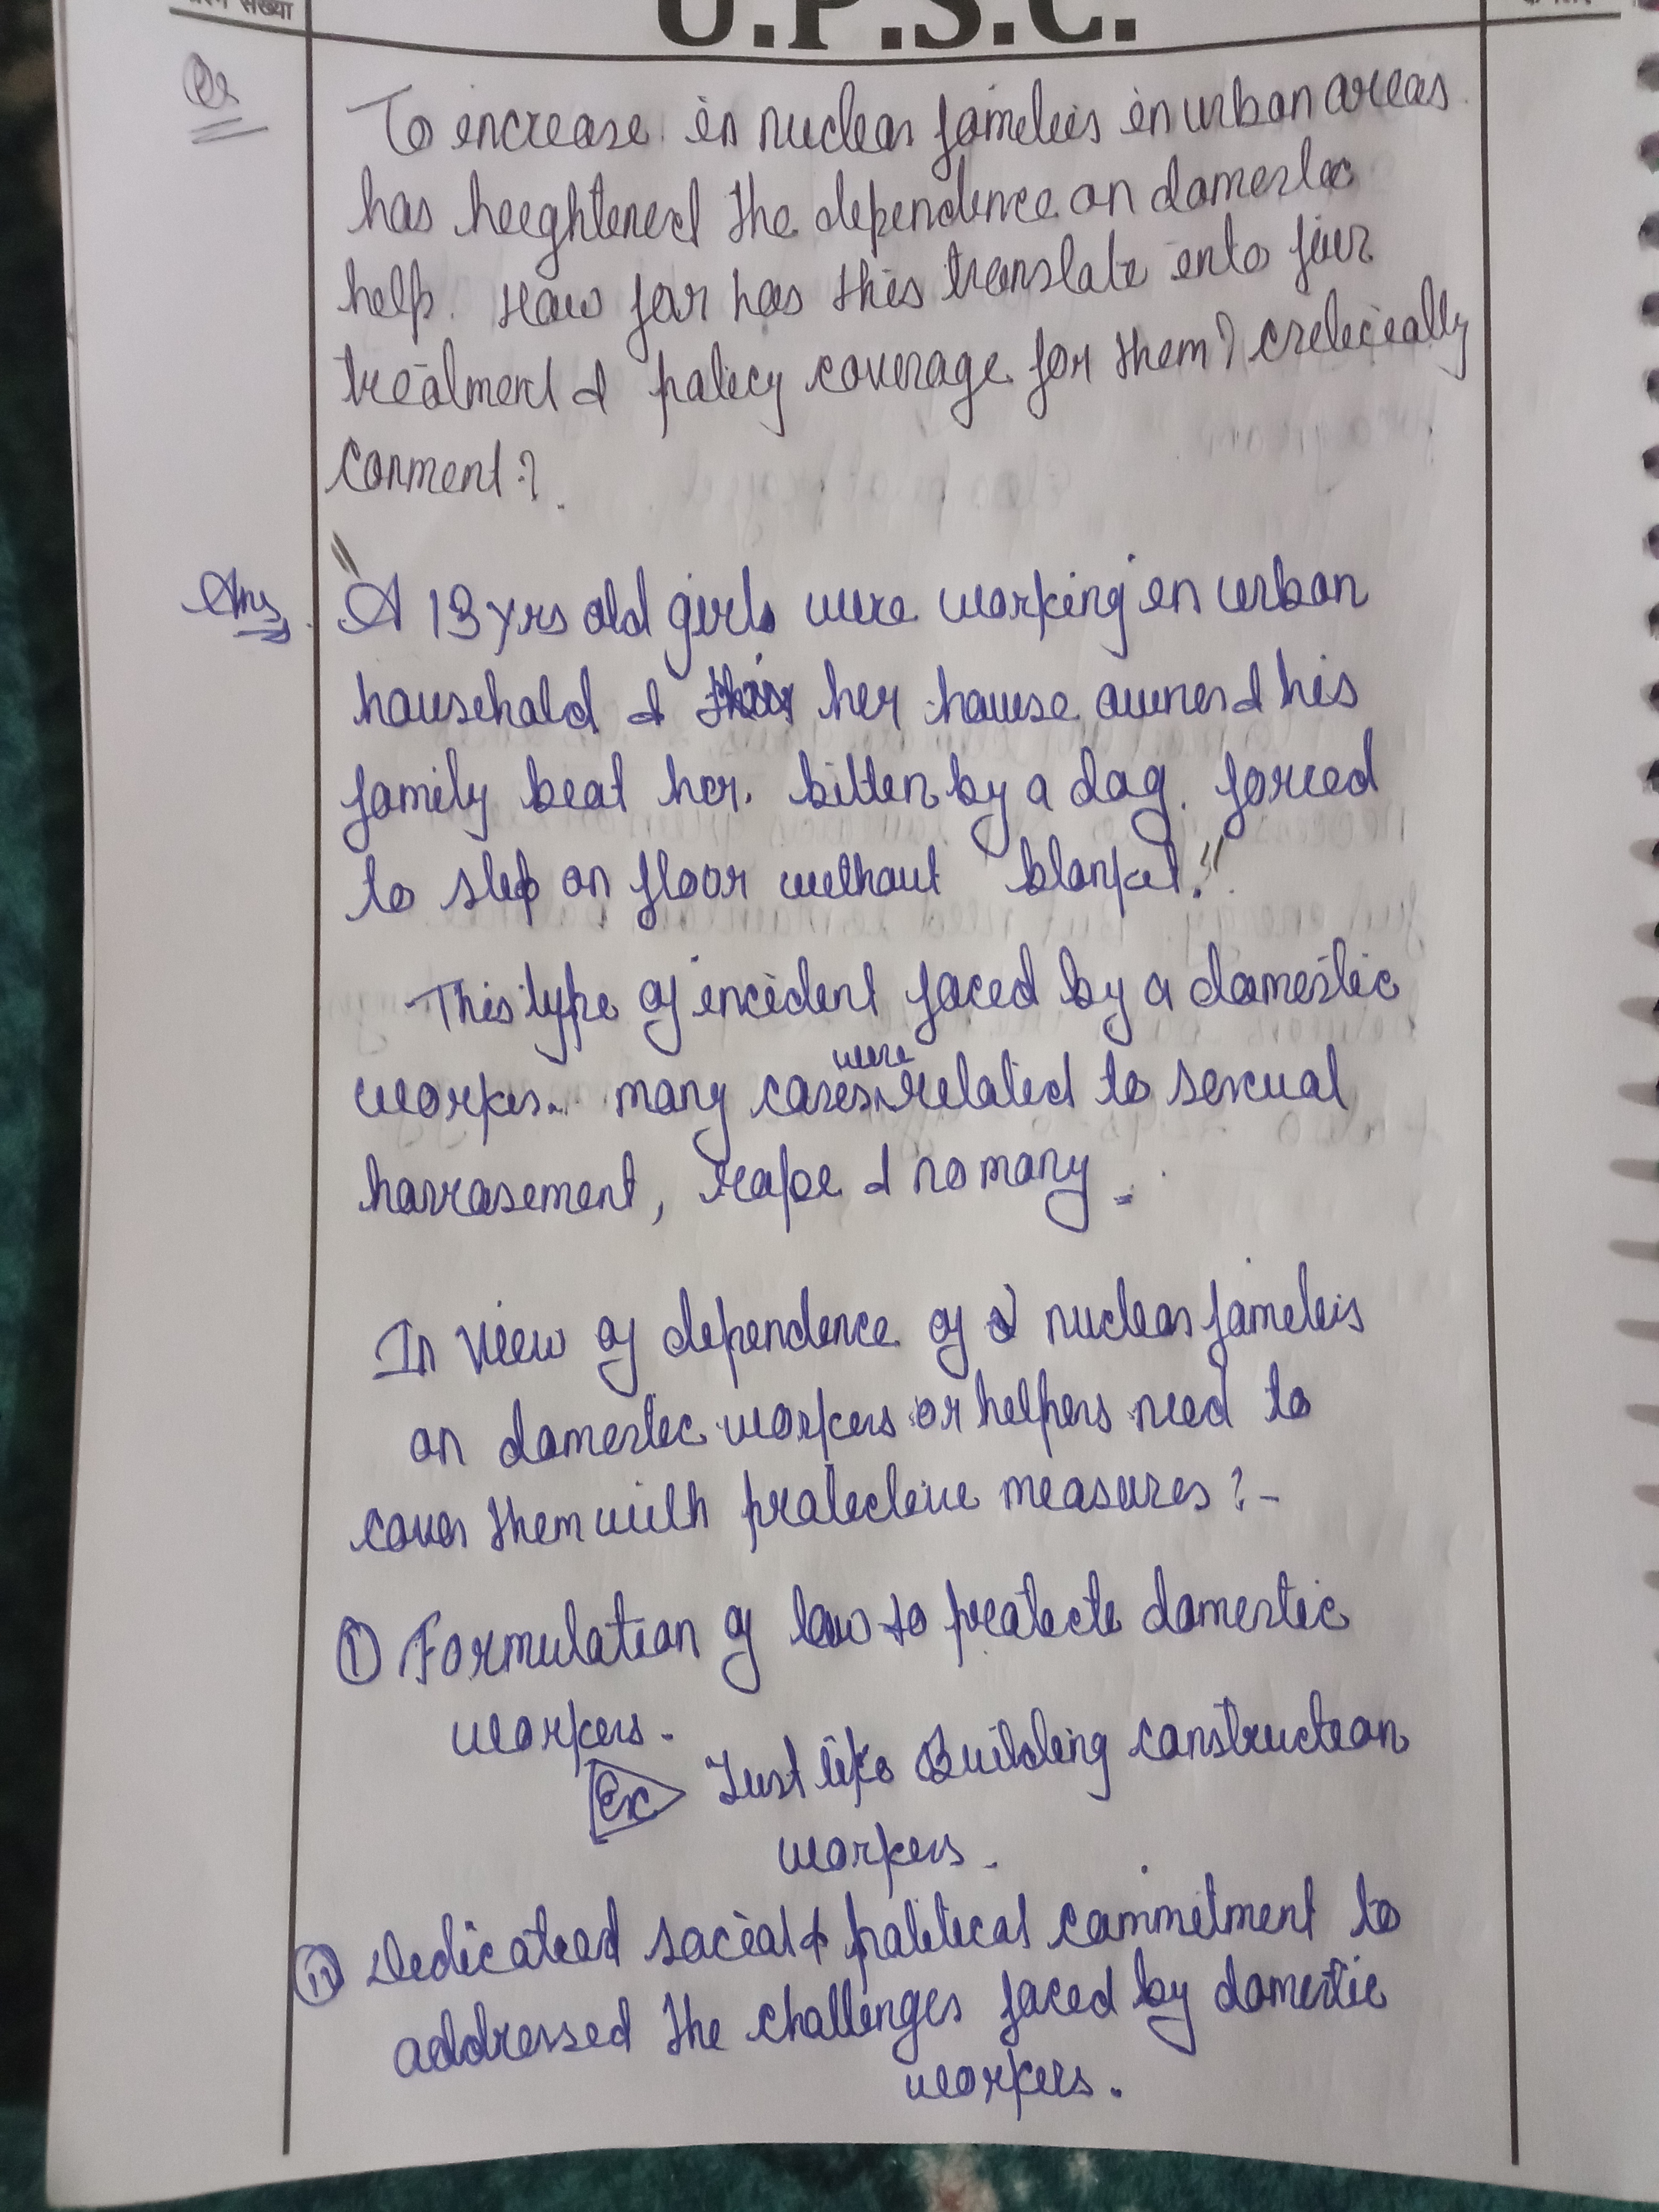 संख्या
U.P.S.C.
Qs
To increase in nuclear families in urban areas
has heightened the dependence on domestic
help. How far has this translate into fair
treatment & policy coverage for them? critically
comment?
Ans
"A 13 yrs old girls were working in urban
household & her house owner & his
family beat her. bitten by a dog. forced
to slep on floor without blanket."
This type of incident faced by a domestic
workes. many cases were related to sexual
harrasement, reape & so many
In view of dependence of nuclear families
on domestic workers or helpers need to
cover them with protective measures?-
① Formulation of law to protecte domestic
workers.
Ex Just like Building construction
workers.
⑪ Dedicated social & political commitment to
addressed the challenges faced by domestic
workers.